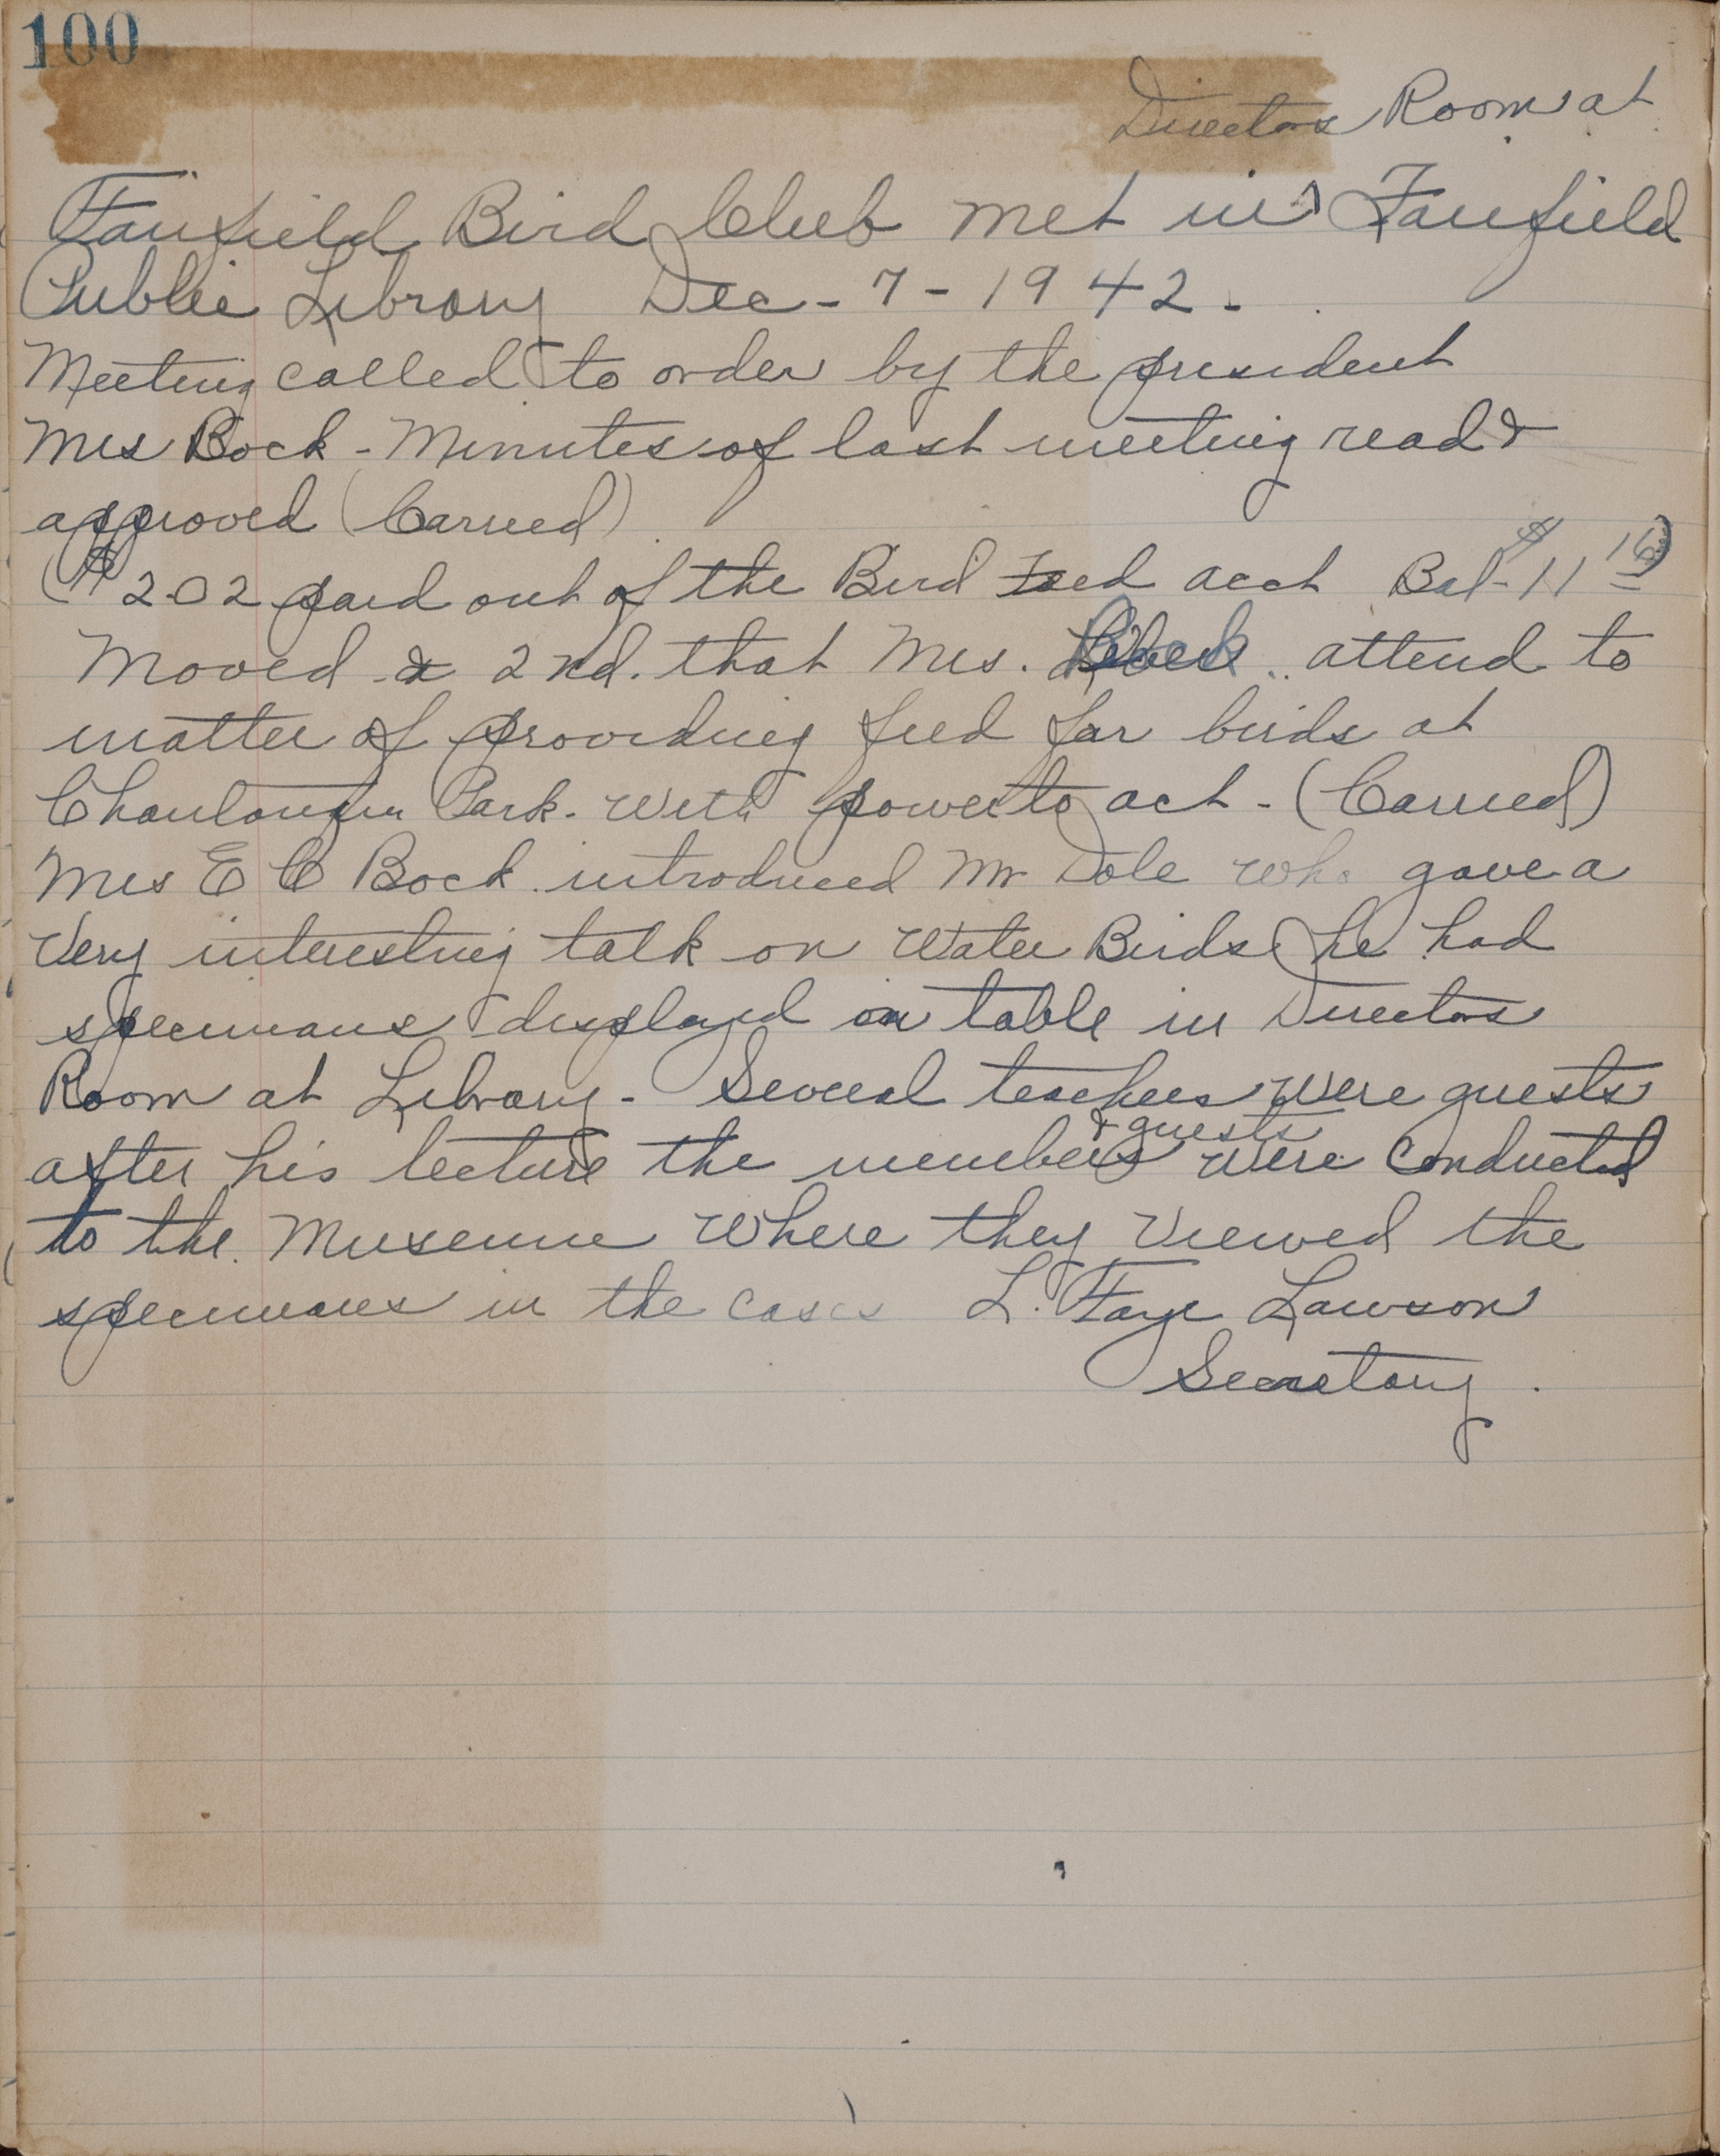 100
Directors Room at
Fairfield Bird Club met in Fairfield
Public Library Dec - 7 - 1942 -
Meeting called to order by the president
Mrs Bock - Minutes of last meeting read &
approved (Carried)
($2.02 paid out of the Bird Feed acct Bal - $11 16)
Moved & 2nd. that Mrs. attend to
matter of providing feed for birds at
Chautauqua Park. with power to act - (Carried)
Mrs E C Bock introduced Mr Dole who gave a
very interesting talk on Water Birds (he had
specimans displayed on table in Directors
Room at Library - Several teachers were guests
after his lecture the members & guests were conducted
to the Museum where they viewed the
specimans in the cases L. Faye Lawson
Secretary.